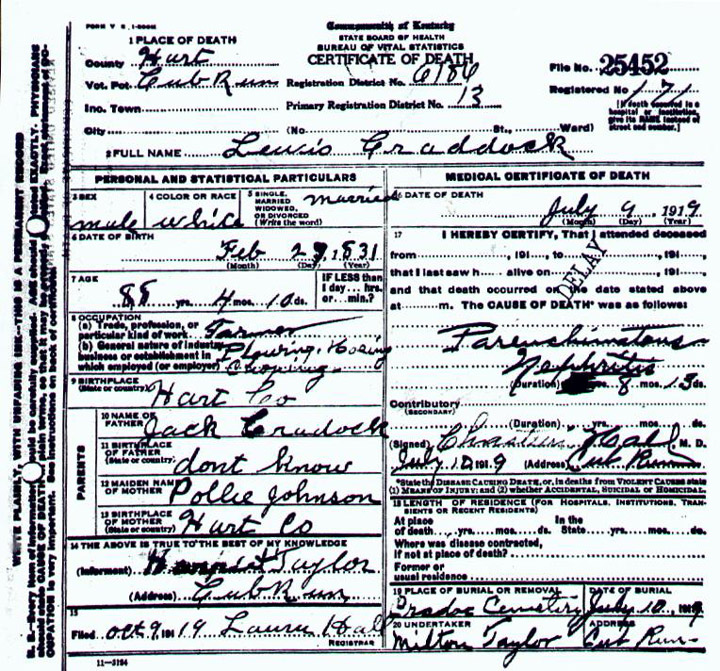 Commonwealth of Kentucky
STATE BOARD OF HEALTH
BUREAU OF VITAL STATISTICS
CERTIFICATE OF DEATH
1 PLACE OF DEATH
County Hart
Vot. Pct. Cub Run
Registration District No. 6186
File No. 25452
Inc. Town
Primary Registration District No. 13
Registered No. 171
[If death occurred in a hospital or institution, give its NAME instead of street and number.]
City (No St., Ward)
2 FULL NAME Lewis Craddock
PERSONAL AND STATISTICAL PARTICULARS
3 SEX male
4 COLOR OR RACE white
5 SINGLE, MARRIED WIDOWED, OR DIVORCED (Write the word) married
6 DATE OF BIRTH
Feb 29, 1831
(Month) (Day) (Year)
7 AGE
88 yrs. 4 mos. 10 ds.
IF LESS than 1 day... hrs. or... min.?
8 OCCUPATION
(a) Trade, profession, or particular kind of work Farmer
(b) General nature of industry, business or establishment in which employed (or employer) Plowing, Hoeing
9 BIRTHPLACE (State or country) Hart Co
PARENTS
10 NAME OF FATHER Jack Cradock
11 BIRTHPLACE OF FATHER (State or country) dont know
12 MAIDEN NAME OF MOTHER Pollie Johnson
13 BIRTHPLACE OF MOTHER (State or country) Hart Co
14 THE ABOVE IS TRUE TO THE BEST OF MY KNOWLEDGE
(Informant) Taylor
(Address) Cub Run
15
Filed Oct 9, 1919 Laura Hall
REGISTRAR
11—3184
MEDICAL CERTIFICATE OF DEATH
16 DATE OF DEATH
July 9, 1919
(Month) (Day) (Year)
17 I HEREBY CERTIFY, That I attended deceased
from , 191 , to , 191 ,
that I last saw h alive on , 191 ,
and that death occurred on the date stated above
at m. The CAUSE OF DEATH* was as follows:
DELAY
Parenchimatous
Nephritis
(Duration) yrs. 8 mos. 13 ds.
Contributory (SECONDARY)
(Duration) yrs. mos. ds.
(Signed) Hall M. D.
July 10, 1919 (Address) Cub Run
*State the DISEASE CAUSING DEATH, or, in deaths from VIOLENT CAUSES state (1) MEANS OF INJURY; and (2) whether ACCIDENTAL, SUICIDAL OR HOMICIDAL.
18 LENGTH OF RESIDENCE (FOR HOSPITALS, INSTITUTIONS, TRANSIENTS OR RECENT RESIDENTS)
At place of death yrs. mos. ds. In the State yrs. mos. ds.
Where was disease contracted, if not at place of death?
Former or usual residence
19 PLACE OF BURIAL OR REMOVAL Cradoc Cemetery
DATE OF BURIAL July 10, 1919
20 UNDERTAKER Milton Taylor
ADDRESS Cub Run